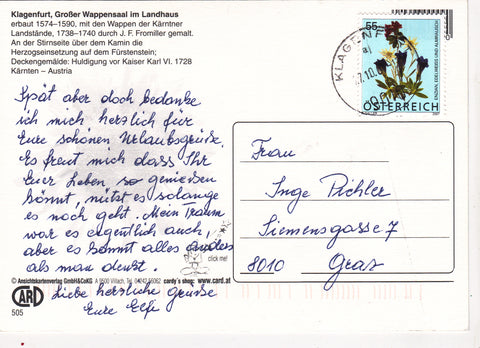 Klagenfurt, Großer Wappensaal im Landhaus
erbaut 1574–1590, mit den Wappen der Kärntner
Landstände, 1738–1740 durch J. F. Fromiller gemalt.
An der Stirnseite über dem Kamin die
Herzogseinsetzung auf dem Fürstenstein;
Deckengemälde: Huldigung vor Kaiser Karl VI. 1728
Kärnten – Austria
Spät aber doch bedanke
ich mich herzlich für
Eure schönen Urlaubsgrüße.
Es freut mich dass Ihr
Euer Leben so genießen
könnt, nützt es solange
es noch geht. Mein Traum
war es eigentlich auch,
aber es kommt alles anders
als man denkt.
Liebe herzliche Grüsse
Eure Elfi
KLAGENF
55
ENZIAN, EDELWEISS UND ALMRAUSCH
ÖSTERREICH
Frau
Inge Pichler
Siemensgasse 7
8010 Graz
click me!
© Ansichtskartenverlag GmbH&CoKG A 9500 Villach, Tel. 04242 55062 cardy's shop: www.card.at
CARD
505